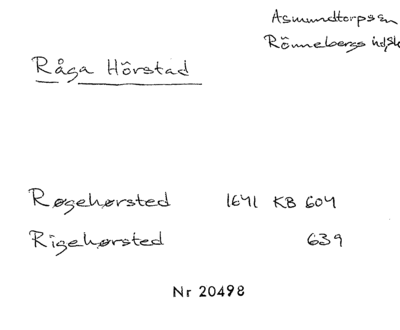 Asmundtorps sn
Rönnebergs hd, Sk
Råga Hörstad
Røgehørsted 1641 KB 604
Rigehørsted 639
Nr 20498